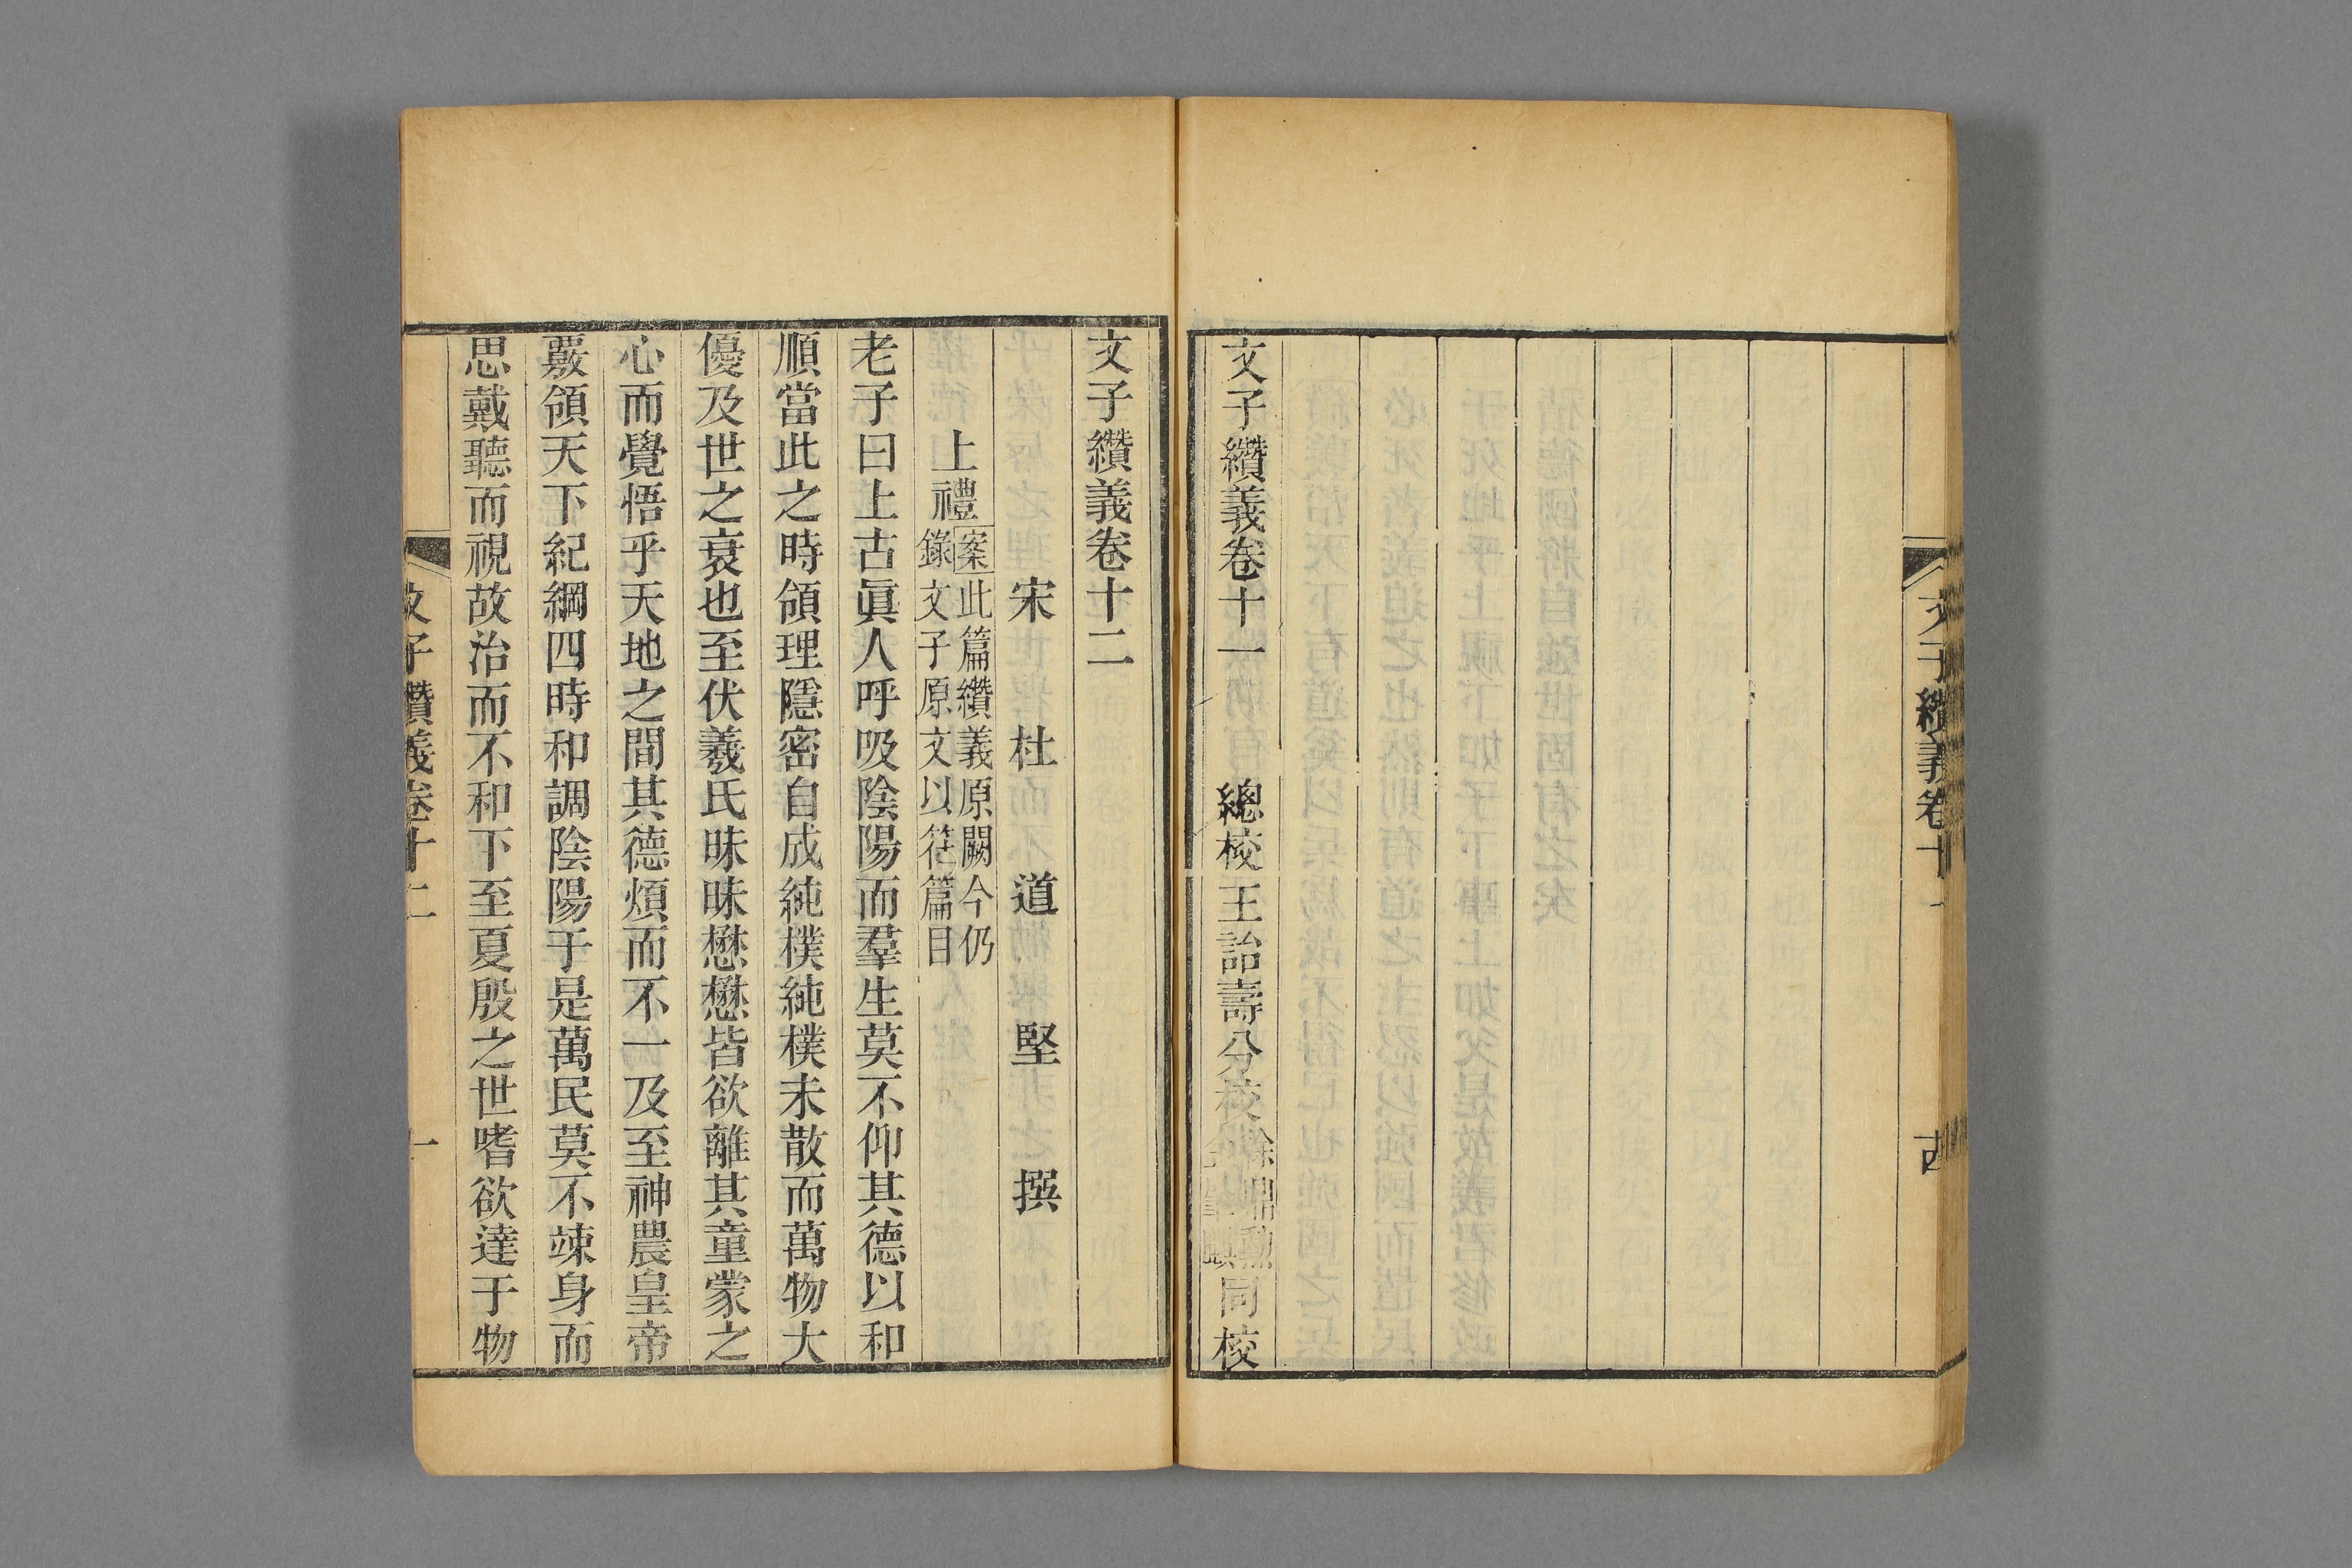 文子纘義卷十
文子纘義卷十一　總校王詒壽分校徐鼎勳同校
文子纘義卷十二
宋　杜　道　堅　撰
上禮
案此篇纘義原闕今仍
錄文子原文以符篇目
老子曰上古眞人呼吸陰陽而羣生莫不仰其德以和
順當此之時領理隱密自成純樸純樸未散而萬物大
優及世之衰也至伏羲氏昧昧懋懋皆欲離其童蒙之
心而覺悟乎天地之間其德煩而不一及至神農皇帝
覈領天下紀綱四時和調陰陽于是萬民莫不竦身而
思戴聽而視故治而不和下至夏殷之世嗜欲達于物
文子纘義卷十二
一